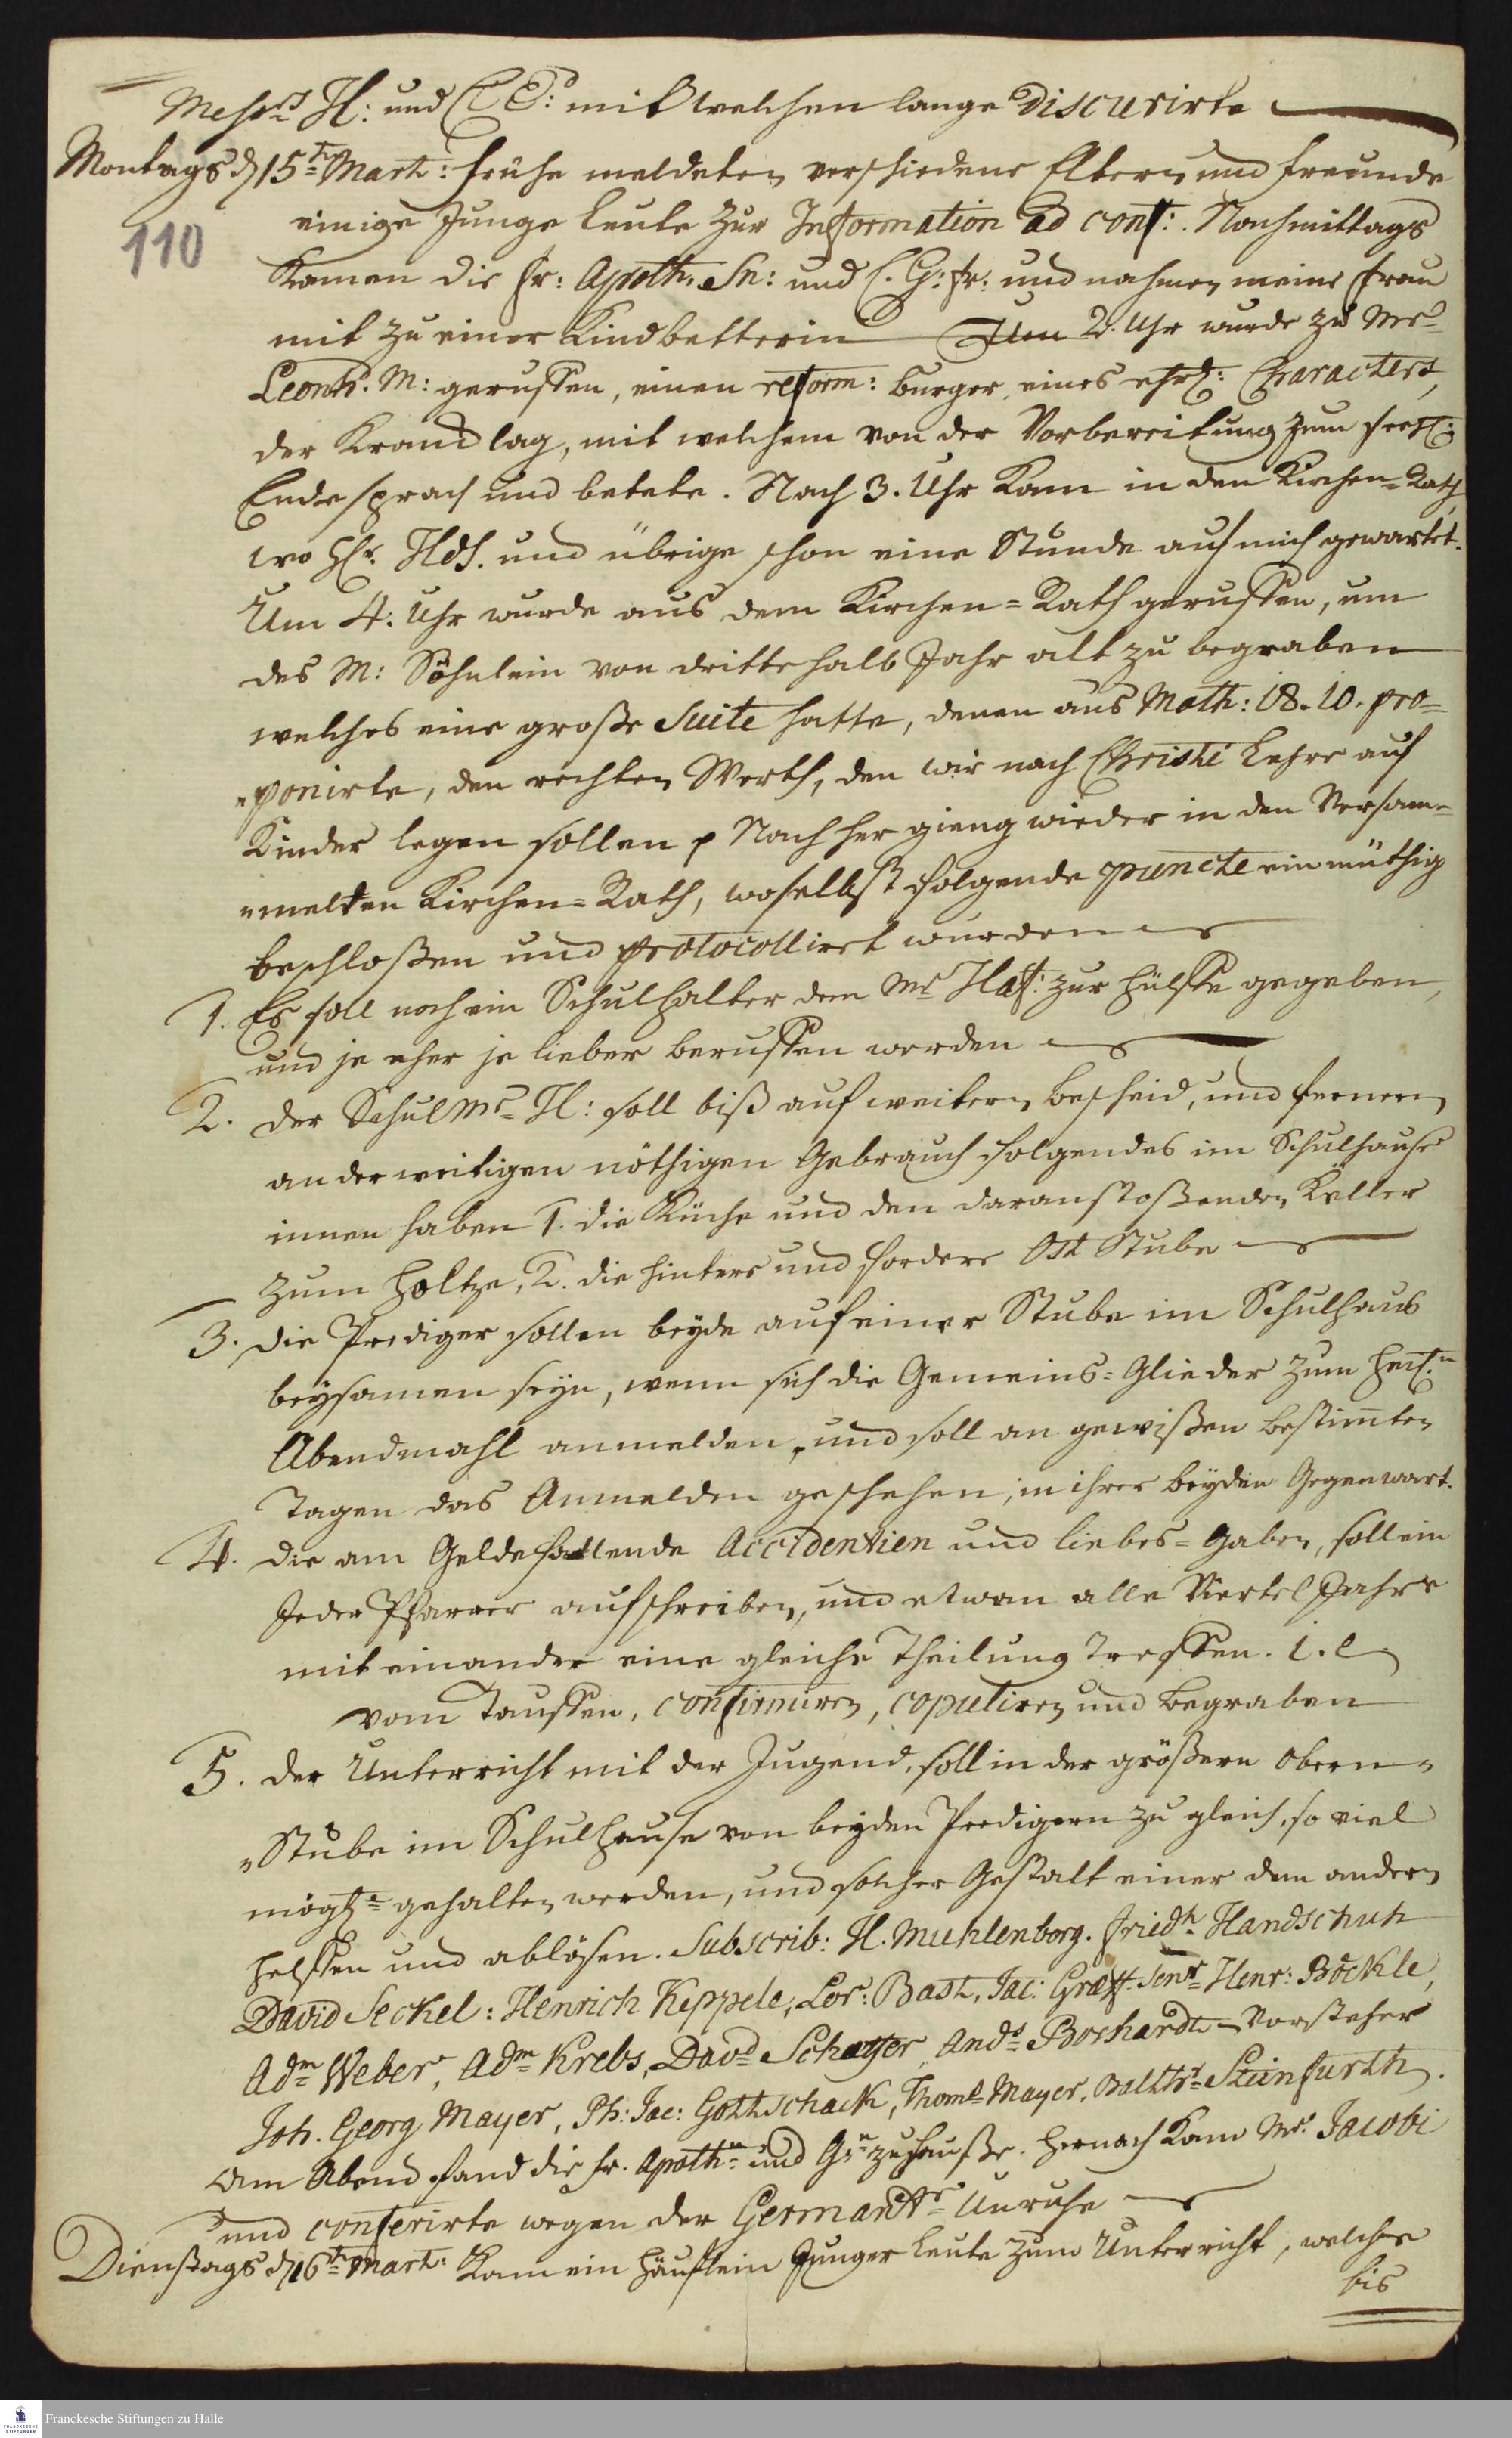 Messrs H: und C. E: mit welchen lange discurirte
Montags d 15tn Mart: frühe meldeten verschiedene Eltern und Freunde
110
einige Junge Leute zur Information ad conf:. Nachmittags
kamen die Fr: Apoth. Sn: und C. G: Fr: und nahmen meine Frau
mit zu einer Kindbetterin Um 2. Uhr wurde zu Mr
Leonh. M: geruffen, einen reform: Burger, eines ehrl: Characters,
der Kranck lag, mit welchem von der Vorbereitung zum seel:
Ende sprach und betete. Nach 3. Uhr kam in den Kirchen=Rath
wo H. Hds. und übrige schon eine Stunde auf mich gewartet.
Um 4. Uhr wurde aus dem Kirchen=Rath geruffen, um
des M: Söhnlein von dritte halb Jahr alt zu begraben
welches eine große Suite hatte, denen aus Math: 18. 10. pro=
=ponirte, den rechten Werth, den wir nach Christi Lehre auf
Kinder legen sollen p Nach her gieng wieder in den Versam=
=melten Kirchen=Rath, woselbst folgende puncte einmüthig
beschloßen und protocollirt wurden
1. Es soll noch ein Schulhalter dem Mr Haf: zur Hülffe gegeben,
und je eher je lieber beruffen werden
2. der Schulmr H: soll biß auf weitern Bescheid, und fernern
anderweitigen nöthigen Gebrauch folgendes im Schulhause
innen haben 1. die Küche und den daranstoßenden Keller
zum Holtze, 2. die hintere und fordere Ost Stube
3. die Prediger sollen beyde auf einer Stube im Schulhaus
beysamen seyn, wenn sich die Gemeins=Glieder zum heil:n
Abendmahl anmelden, und soll an gewißen bestimten
Tagen das Anmelden geschehen, in ihrer beyden Gegenwart.
4. die am Gelde fallende Accidentien und Liebes=Gaben, soll ein
Jeder Pfarrer aufschreiben, und etwan alle Viertel Jahre
mit einander eine gleiche Theilung treffen. i. e
vom Tauffen, confirmiren, copuliren und Begraben
5. der Unterricht mit der Jugend, soll in der größern Obern=
=Stube im Schulhause von beyden Predigern zu gleich, so viel
mögl= gehalten werden, und solcher Gestalt einer dem andern
helffen und ablösen. Subscrib: H. Muhlenberg. Friedh Handschuh
David Seckel: Henrich Keppele, Lor: Bast, Jac: Græff Senr Henr: Böckle,
Adm Weber, Adm Krebs, Davd Schæffer, Ands Boshardt Vorsteher
Joh. Georg Mayer, Ph: Jac: Gottschack, Thoms Mayer, Balthr Steinfurth.
Am Abend fand die Fr. Apothn und Grn zu Hauße. Hernach kam Mr Jacobi
und conferirte wegen der Germantr Unruhe
Dienstags d 16tn Mart: Kam ein Häuflein Junger Leute zum Unterricht, welches
bis
Franckesche Stiftungen zu Halle